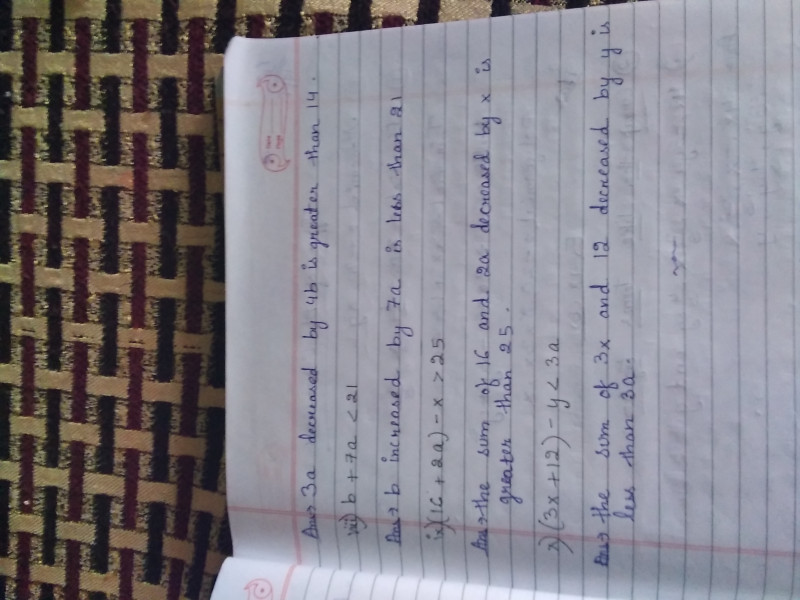 Ans→ 3a decreased by 4b is greater than 14.
viii) b + 7a < 21
Ans→ b increased by 7a is less than 21
ix) (16 + 2a) - x > 25
Ans→ the sum of 16 and 2a decreased by x is
greater than 25.
x) (3x + 12) - y < 3a
Ans→ the sum of 3x and 12 decreased by y is
less than 3a.